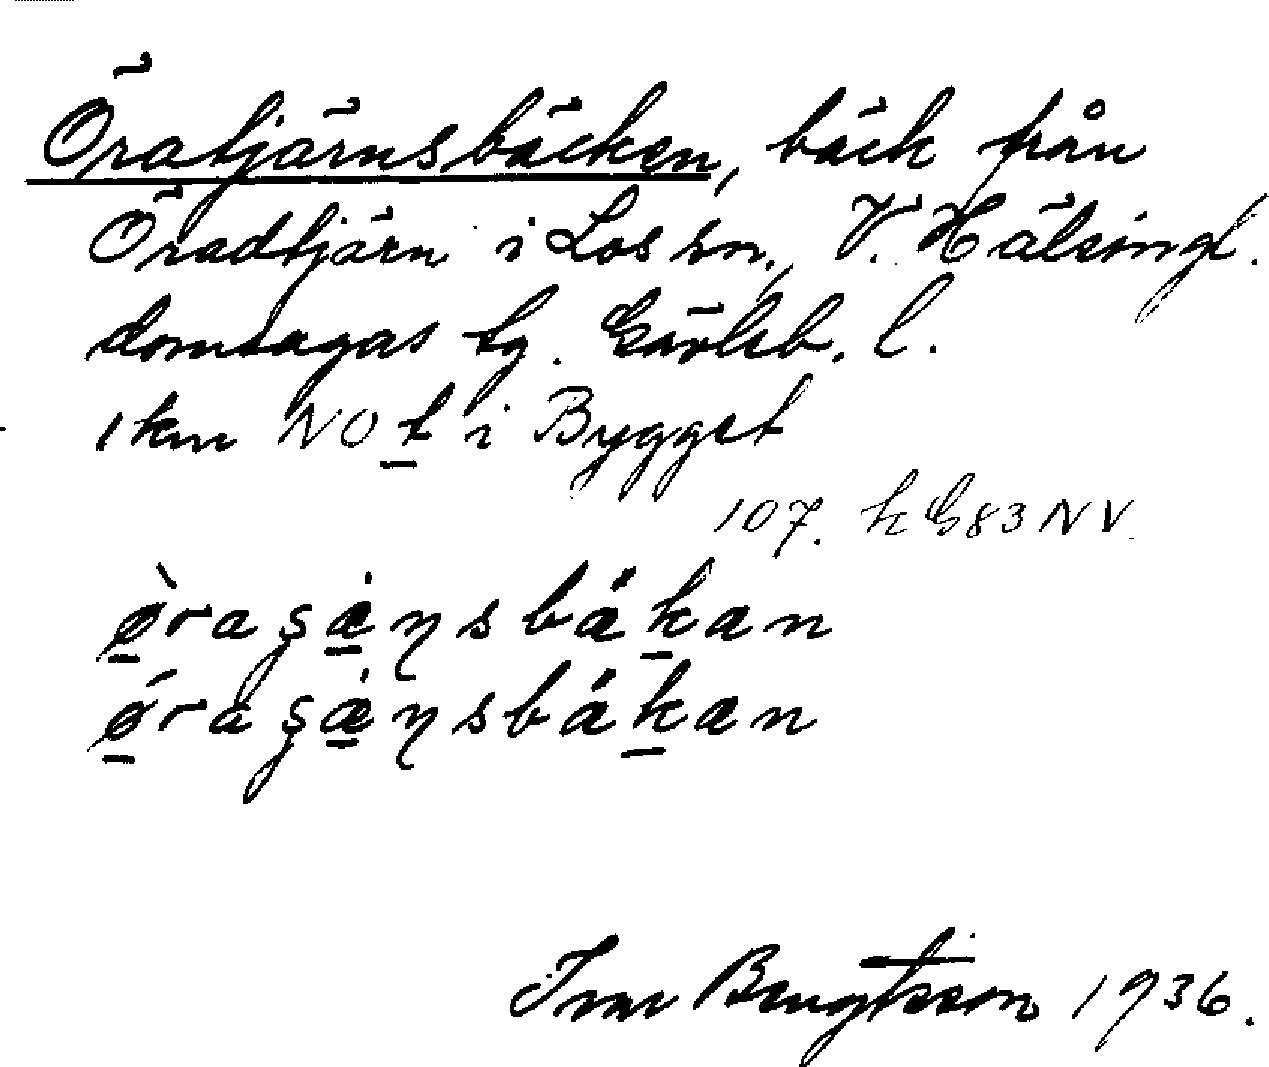 Öratjärnsbäcken, bäck från
Öradtjärn i Los sn., V. Hälsingl.
domsagas tg. Gävleb. l.
1 km NO t i Bygget
107. k G83 NV.
ø̀raʂæ̇ɳsbäkan
ǿraʂæ̇ɳsbäkan
Ivar Bengtsson 1936.